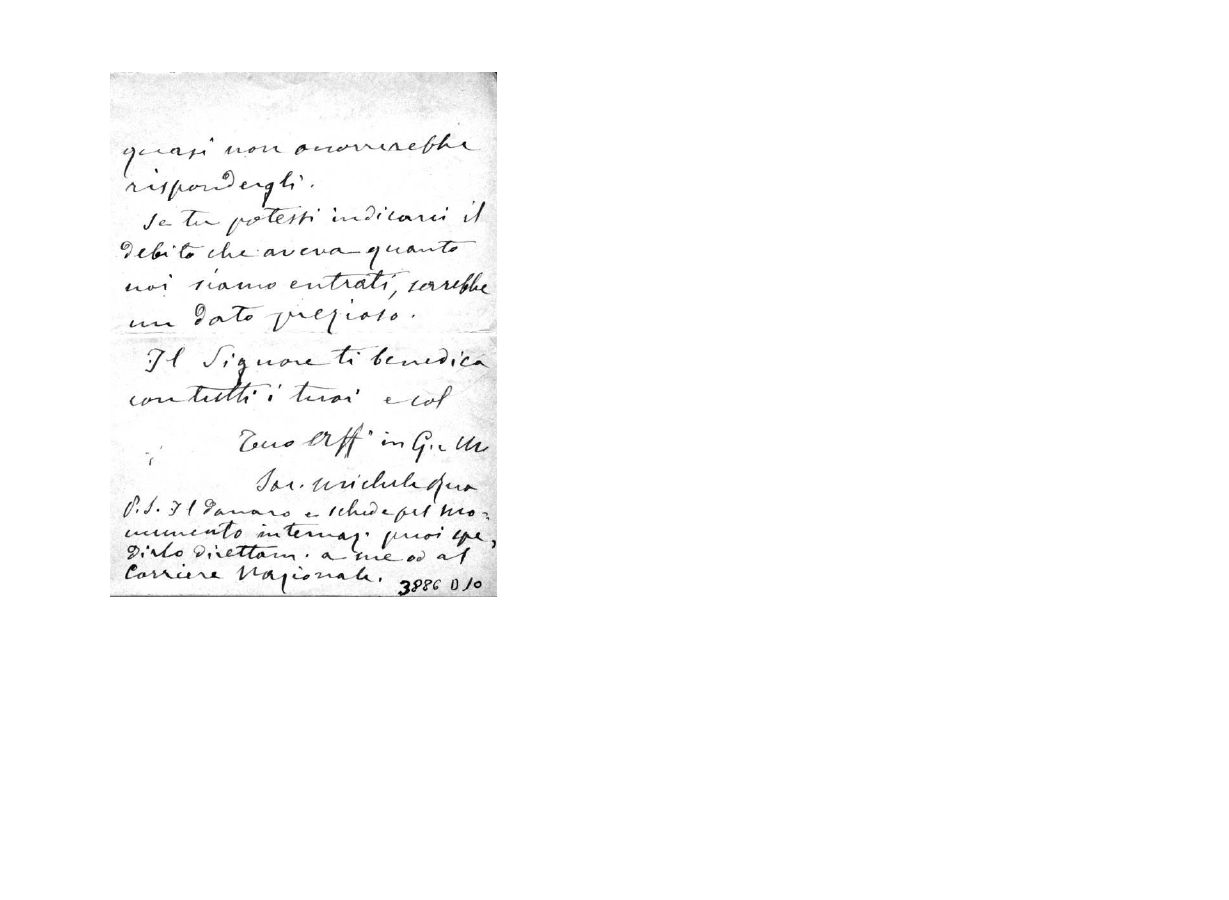 quasi non occorrerebbe
rispondergli.
Se tu potessi indicarci il
debito che aveva quanto
noi siamo entrati, sarebbe
un dato prezioso.
Il Signore ti benedica
con tutti i tuoi e col
Tuo aff° in G. e M
Sac. Michele Rua
P.S. Il danaro e schede pel mo=
numento internaz. puoi spe,
dirlo direttam. a me od al
Corriere Nazionale.
3886 D 10